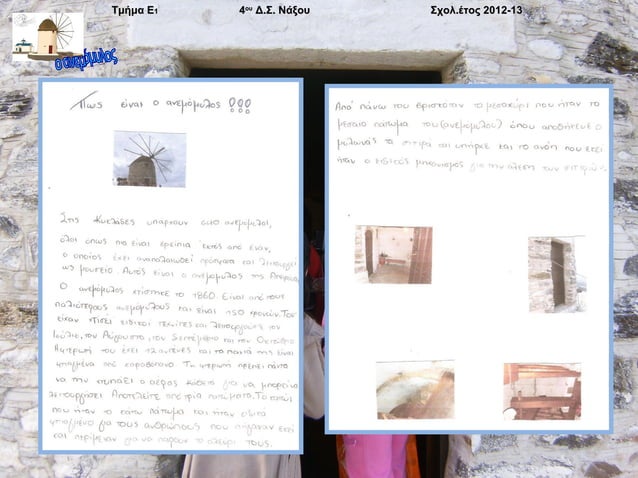 Τμήμα Ε1 4ου Δ.Σ. Νάξου Σχολ.έτος 2012-13
ο ανεμόμυλος
Πως είναι ο ανεμόμυλος !!!
Στις Κυκλάδες υπάρχουν ανεμόμυλοι,
όλοι όπως πια είναι ερείπια εκτός από έναν,
ο οποίος έχει αναπαλαιωθεί πρόσφατα και λειτουργεί
ως μουσείο. Αυτός είναι ο ανεμόμυλος της
Ο ανεμόμυλος χτίστηκε το 1860. Είναι από τους
παλιότερους ανεμόμυλους και είναι 150 χρονών. Τον
είχαν χτίσει ειδικοί τεχνίτες και λειτουργούσε τον
Ιούλιο, τον Αύγουστο, τον Σεπτέμβριο και τον Οκτώβριο
Η φτερωτή του έχει 12 αντένες και τα πανιά της είναι
φτιαγμένα από καραβόπανο. Τη φτερωτή πρέπει πάντα
να την χτυπάει ο αέρας κάθετα για να μπορεί να
λειτουργήσει. Αποτελείτε από τρία πατώματα. Το κατώι
που ήταν το κάτω πάτωμα και ήταν
φτιαγμένο για τους ανθρώπους που πήγαιναν εκεί
και περίμεναν για να πάρουν το αλεύρι τους.
Από πάνω του βρισκόταν το μεσακύρι που ήταν το
μεσαίο πάτωμα του (ανεμόμυλου) όπου αποθήκευε ο
μυλωνάς τα σιτηρά και υπήρχε και το ανώι που εκεί
ήταν ο ειδικός μηχανισμός για την άλεση των σιτηρών.